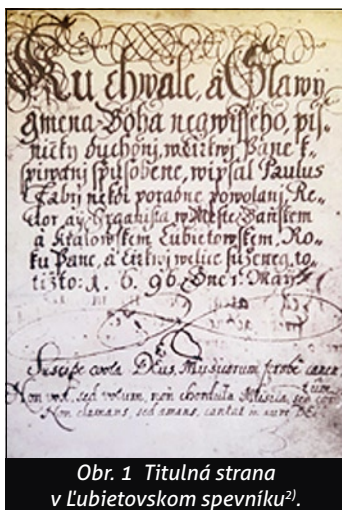 Ku chwale, a Slawy
gmena Boha negwissseho, pis„
ničky duchonj, w Cyrkwj Pane k„
spiwanj spůsobene, wipsal Paulus
Fabrj někdi poradne powolanj, Re„
ctor, aÿ Organista w Měste Baňskem
a Kralowskem Lubietowskem, Ro„
ku Pane, a Cirkwj welice sužene,
totižto: 1. 6. 96. Dne 1. Maÿ
Suscipe vota Deus, Musicorum
Non vox, sed votum, non chordula Musica, sed cor
Non clamans, sed amans, cantat in aure DEi
Obr. 1 Titulná strana
v Ľubietovskom spevníku²⁾.